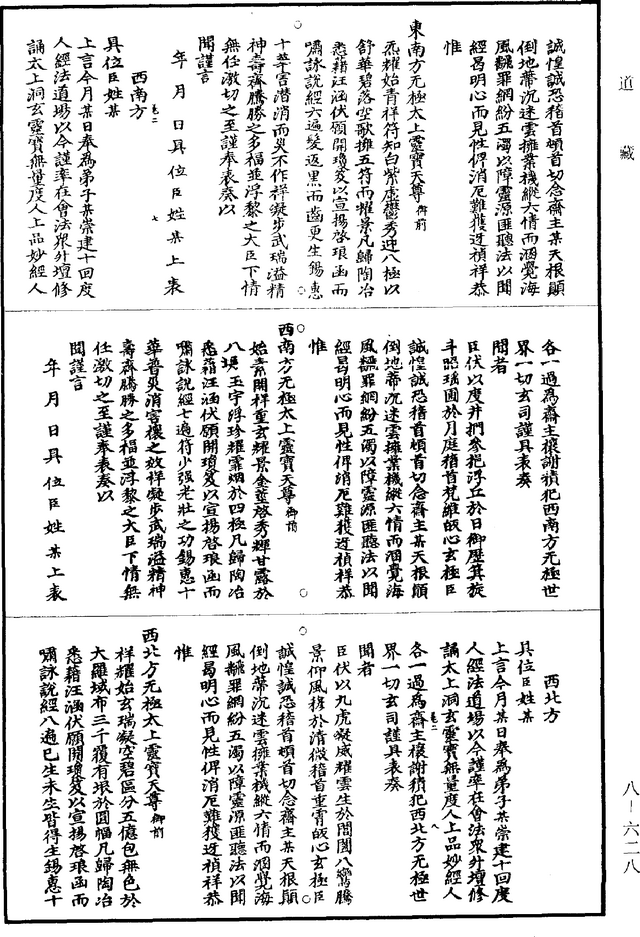 道藏
誠惶誠恐稽首頓首切念齋主某天根顛
倒地蒂沉迷雲擁業機縱六情而溷覺海
風飜罪網紛五濁以障靈源匪聽法以聞
經曷明心而見性俾消厄難獲迓禎祥恭
惟
東南方无極太上靈寶天尊御前
炁耀始青祥符知白紫虛鬱秀迎八極以
舒華碧落空歌擁五符而耀景凡歸陶冶
悉藉汪涵伏願開瓊笈以宣揚啓琅函而
嘯詠說經六遍髮返黑而齒更生錫惠
十華害潛消而災不作祥凝步武瑞溢精
神壽齊騰勝之多福並浮黎之大臣下情
無任激切之至謹奉表奏以
聞謹言
年月日具位臣姓某上表
西南方
卷二
七
具位臣姓某
上言今月某日奉為弟子某崇建十回度
人經法道場以今謹率在會法眾升壇修
誦太上洞玄靈寶無量度人上品妙經人
各一過為齋主禳謝積犯西南方无極世
界一切玄司謹具表奏
聞者
臣伏以度井捫參挹浮丘於日御歷箕旋
斗照瑤圃於月庭稽首梵維皈心玄極臣
誠惶誠恐稽首頓首切念齋主某天根顛
倒地蒂沉迷雲擁業機縱六情而溷覺海
風飜罪網紛五濁以障靈源匪聽法以聞
經曷明心而見性俾消厄難獲迓禎祥恭
惟
西南方无極太上靈寶天尊御前
始素開祥重玄耀景金靈啓秀輝甘露於
八瑛玉宇浮珍耀霏烟於四極凡歸陶冶
悉藉汪涵伏願開瓊笈以宣揚啓琅函而
嘯詠說經七遍符少强老壯之功錫惠十
華普災消害禳之效祥凝步武瑞溢精神
壽齊騰勝之多福並浮黎之大臣下情無
任激切之至謹奉表奏以
聞謹言
年月日具位臣姓某上表
西北方
具位臣姓某
上言今月某日奉為弟子某崇建十回度
人經法道場以今謹率在會法眾升壇修
誦太上洞玄靈寶無量度人上品妙經人
卷二
八
各一過為齋主禳謝積犯西北方无極世
界一切玄司謹具表奏
聞者
臣伏以九虎凝威耀雲生於閶闔八鸞騰
景仰風移於清微稽首重霄皈心玄極臣
誠惶誠恐稽首頓首切念齋主某天根顛
倒地蒂沉迷雲擁業機縱六情而溷覺海
風飜罪網紛五濁以障靈源匪聽法以聞
經曷明心而見性俾消厄難獲迓禎祥恭
惟
西北方无極太上靈寶天尊御前
祥耀始玄瑞凝空碧區分五億包無色於
大羅域布三千覆有垠於圓幅凡歸陶冶
悉藉汪涵伏願開瓊笈以宣揚啓琅函而
嘯詠說經八遍已生未生皆得生錫惠十
八-六二八